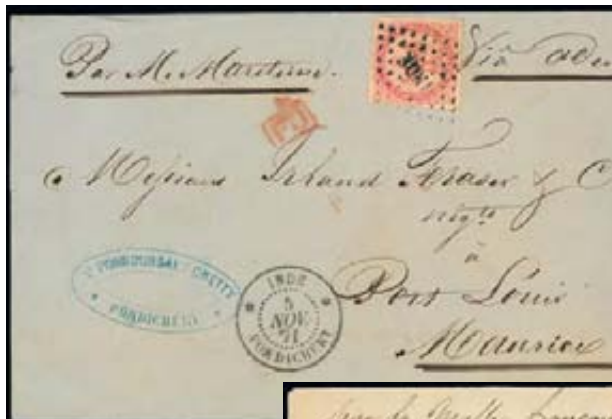 Par M. Maritime.
Via Aden
P.D.
Messieurs Irland Fraser & C
negts
à
Port Louis
Maurice
PONNOUSAMY CHETTY
PONDICHERY
INDE
5
NOV.
71
PONDICHERY